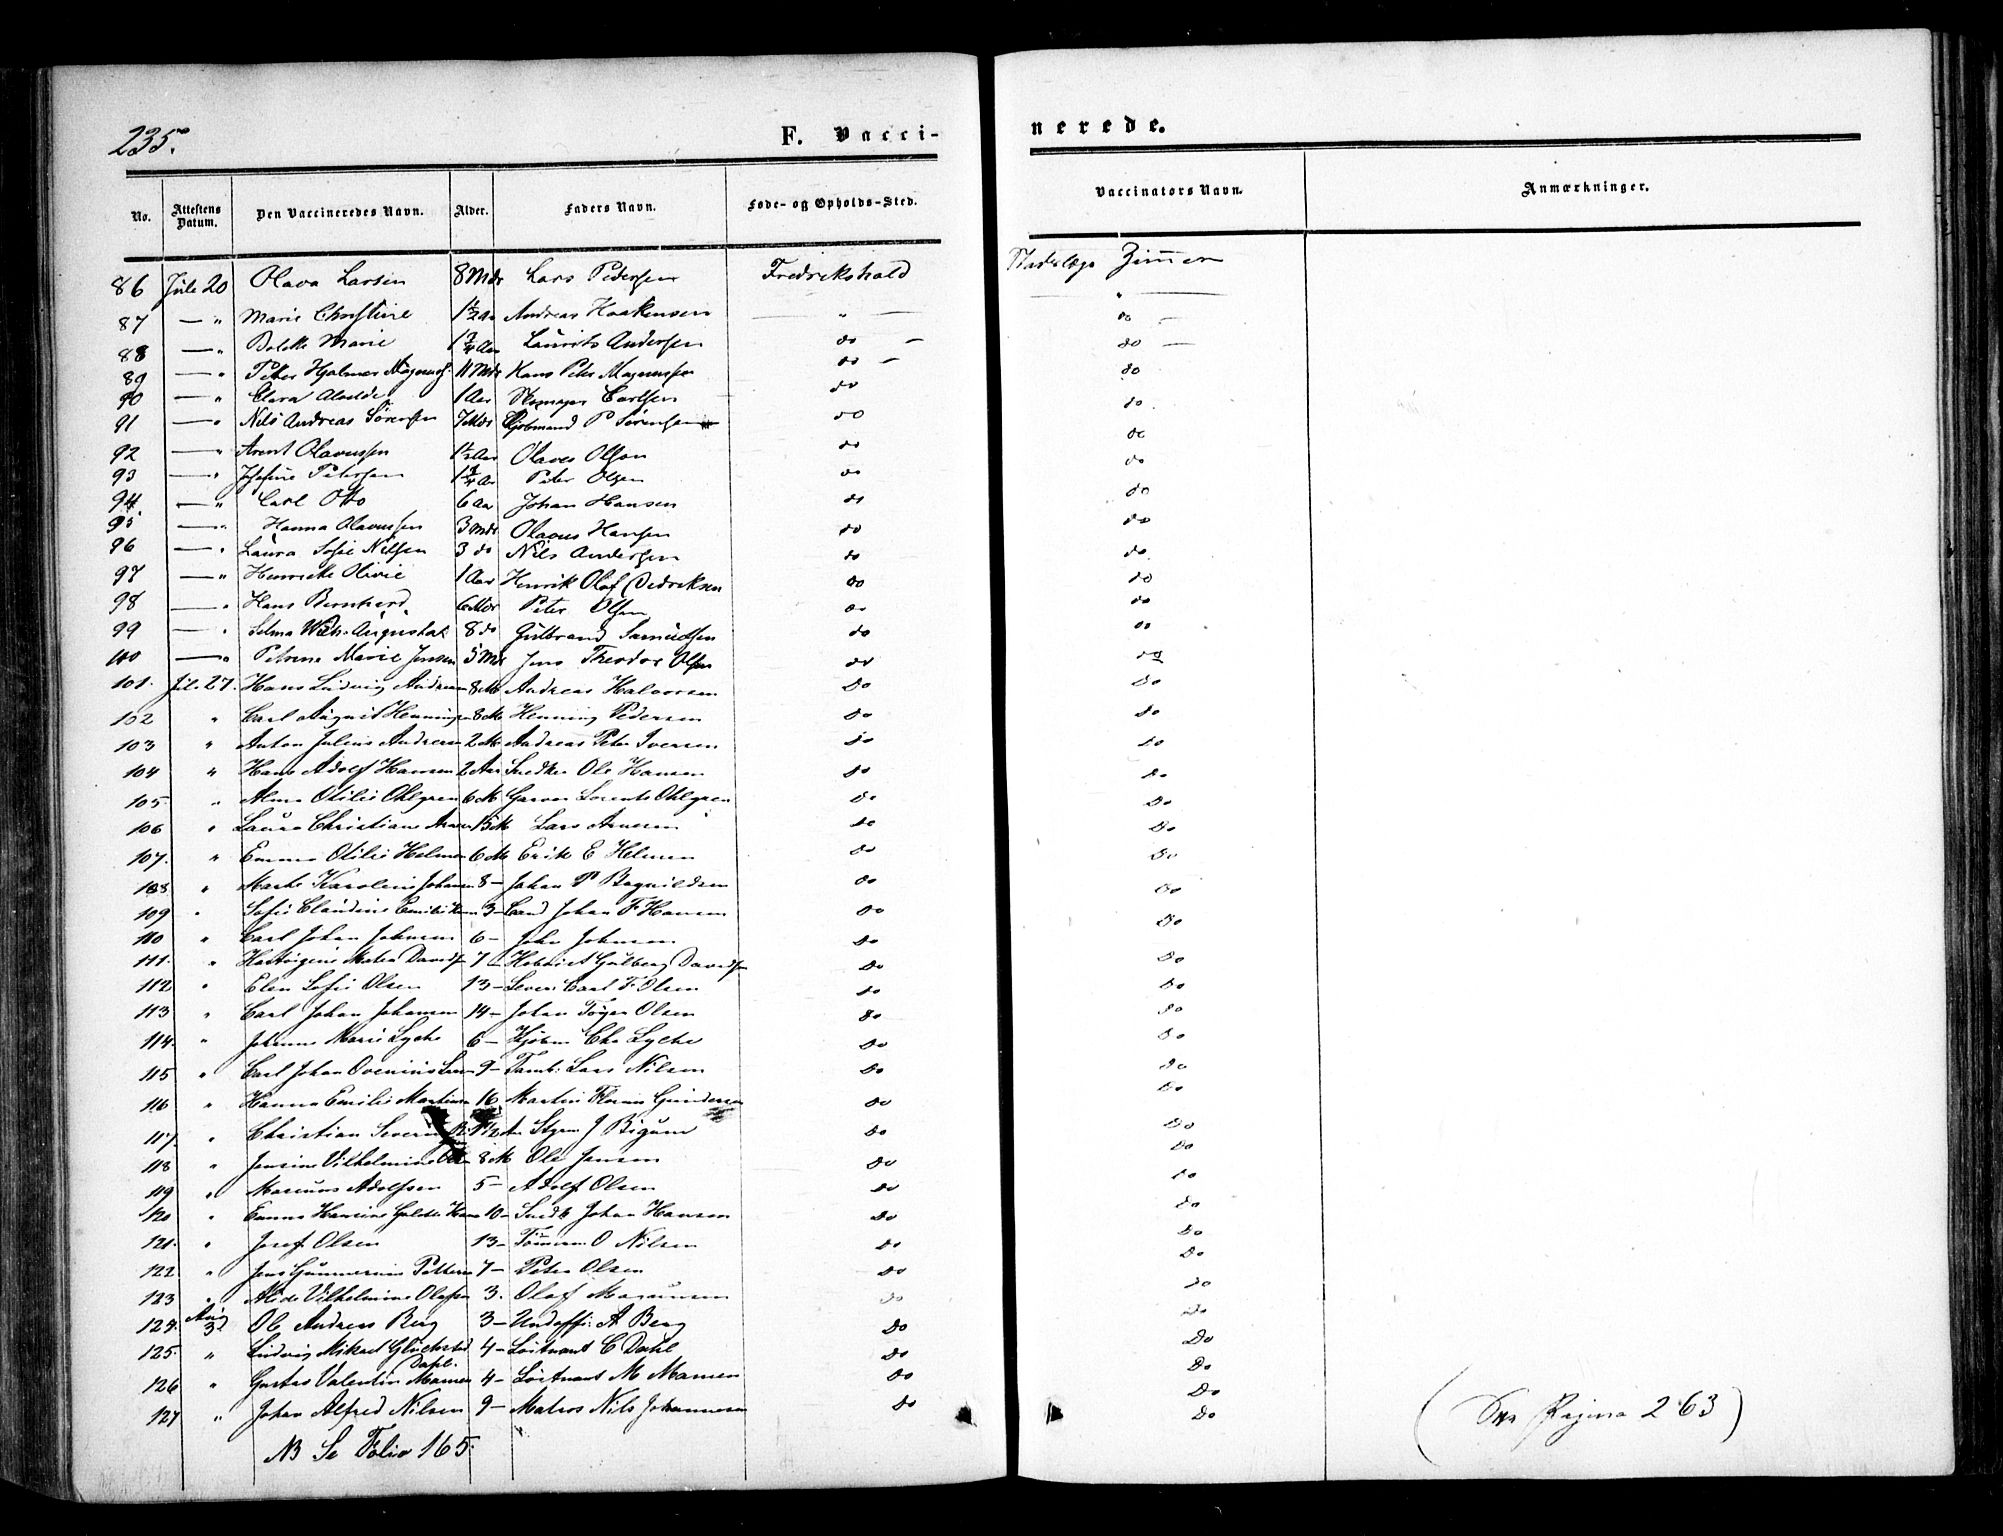 235.
F. Vacci-
nerede.
No. Attestens Datum. Den Vaccineredes Navn. Alder. Faders Navn. Føde- og Opholds-Sted. Vaccinators Navn. Anmærkninger.
86 Jule 20 Olava Larsen 8 Mdr Lars Pedersen Fredrikshald Zimmer
87 — " Marie Christine 1½ Aar Andreas Haakensen — " — — " —
88 — " Bolette Marie 1¾ Aar Laurits Andersen do — do —
89 — " Peter Hjalmar 11 Mdr Hans Peter Magnussen do — do —
90 — " Clara 1 Aar Carlsen do do
91 — " Nils Andreas Sørensen 7 Mdr P Sørensen do do
92 — " Arent Olavussen 1½ Aar Olaves Olsen do do
93 — " Josefine Petersen 1¾ Aar Peter Olsen do do
94 — " Carl Otto 6 Aar Johan Hansen do do
95 — " Hanna Olavussen 3 Mdr Olavus Hansen do do
96 — " Laura Sofie Nilsen 3 do Nils Andersen do do
97 — " Henriette Olivie 1 Aar Henrik Olaf Didriksen do do
98 — " Hans Bernhard 6 Mdr Peter Olsen do do
99 — " Selma 8 do Gulbrand do do
100 — " Petrine Marie Jensen 5 Mdr Jens Theodor Olsen do do
101. Jul. 27. Hans Ludvig Andreasen 8 M Andreas Halvorsen Do Do
102 " Carl August Henningsen 8 M Henning Pedersen Do Do
103 " Anton Julius Andreasen 2 M Andreas Peter Iversen Do Do
104 " Hans Adolf Hansen 2 Aar Snedker Ole Hansen Do Do
105 " Alma Otilie Ohlgren 6 M Garver Lorents Ohlgren Do Do
106 " Laura Christiane 15 M Lars Arnesen Do Do
107. " Emma Otilie Helmen 6 M Erik E Helmen Do Do
108. " Karoline Johansen 8 — Johan P Do Do
109 " Sofie Claudine 3 — Johan F Hansen Do Do
110 " Carl Johan Johnsen 6 — John Johnsen Do Do
111. " 7 — Gulberg Davidsen Do Do
112 " Elen Sofie Olsen 13 — Carl F. Olsen Do Do
113 " Carl Johan Johansen 14 — Johan Olsen Do Do
114. " Johanne Marie Lyche 6 — Chr Lyche Do Do
115 " Carl Johan 9 — Lars Nilsen Do Do
116 " Hanna Emilie Martinsen 16 Martin Gundersen Do Do
117 " Christian Severin 1½ Aar J Bigum Do Do
118 " Jensine Vilhelmine 8 M Ole Jensen Do Do
119 " Marcus Adolfsen 5 — Adolf Olsen Do Do
120 " Emma Hansine 10 — Snedk Johan Hansen Do Do
121. " Josef Olsen 13 — Tømmerm O Nilsen Do Do
122. " Jens 7 — Peter Olsen Do Do
123 " Vilhelmine Olafsen 3. Olaf Do Do
124. Aug 3 Ole Andreas Berg 3 — Undoffi: A Berg Do Do
125. " Ludvig Mikael Gluckstad Dahl. 4 — Løitnant C Dahl Do Do
126 " Gustav Valentin Mansen 4 — Løitnant M Mansen Do Do
127 " Johan Alfred Nilsen 9 — Matros Nils Johannesen Do Do
NB Se Folio 165.
( Pagina 263 )